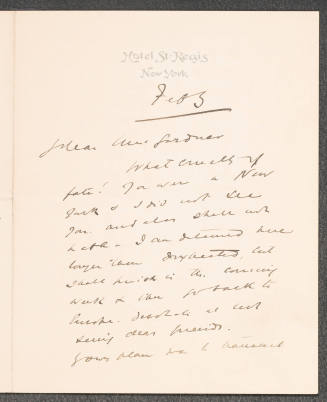 Hotel St. Regis
New York
Feb 3
Dear Mrs Gardner
What cruelty of
fate! You were in New
York & I did not see
you and also shall not
be able - I am detained here
longer than I expected, but
shall finish in the coming
week & then go back to
Europe.
seeing dear friends.
Yours plan was to